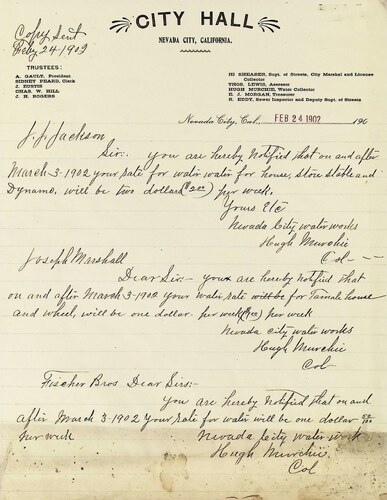 Copy Sent
Feby 24-1902
CITY HALL
NEVADA CITY, CALIFORNIA.
TRUSTEES:
A. GAULT, President
SIDNEY PEARD, Clerk
J. EUSTIS
CHAS. W. HILL
J. H. ROGERS
HI SHEARER, Supt. of Streets, City Marshal and License Collector
THOS. LEWIS, Assessor
HUGH MURCHIE, Water Collector
E. J. MORGAN, Treasurer
R. EDDY, Sewer Inspector and Deputy Supt. of Streets
Nevada City, Cal., FEB 24 1902 190
J. J. Jackson
Sir:- you are hereby Notified that on and after
March 3-1902 your rate for water water for house, store stable and
Dynamo, will be two dollars ($2.00) per week.
Yours Etc
Nevada City water works
Hugh Murchie
Col - --
Joseph Marshall
Dear Sir:- you are hereby notified that
on and after March 3-1902 your water rate will be for house
and wheel, will be one dollar per week per week
Nevada city water works
Hugh Murchie
Col-
Fischer Bros Dear Sirs:-
you are hereby Notified that on and
after March 3-1902 your rate for water will be one dollar
per week Nevada City water work
Hugh Murchie
Col